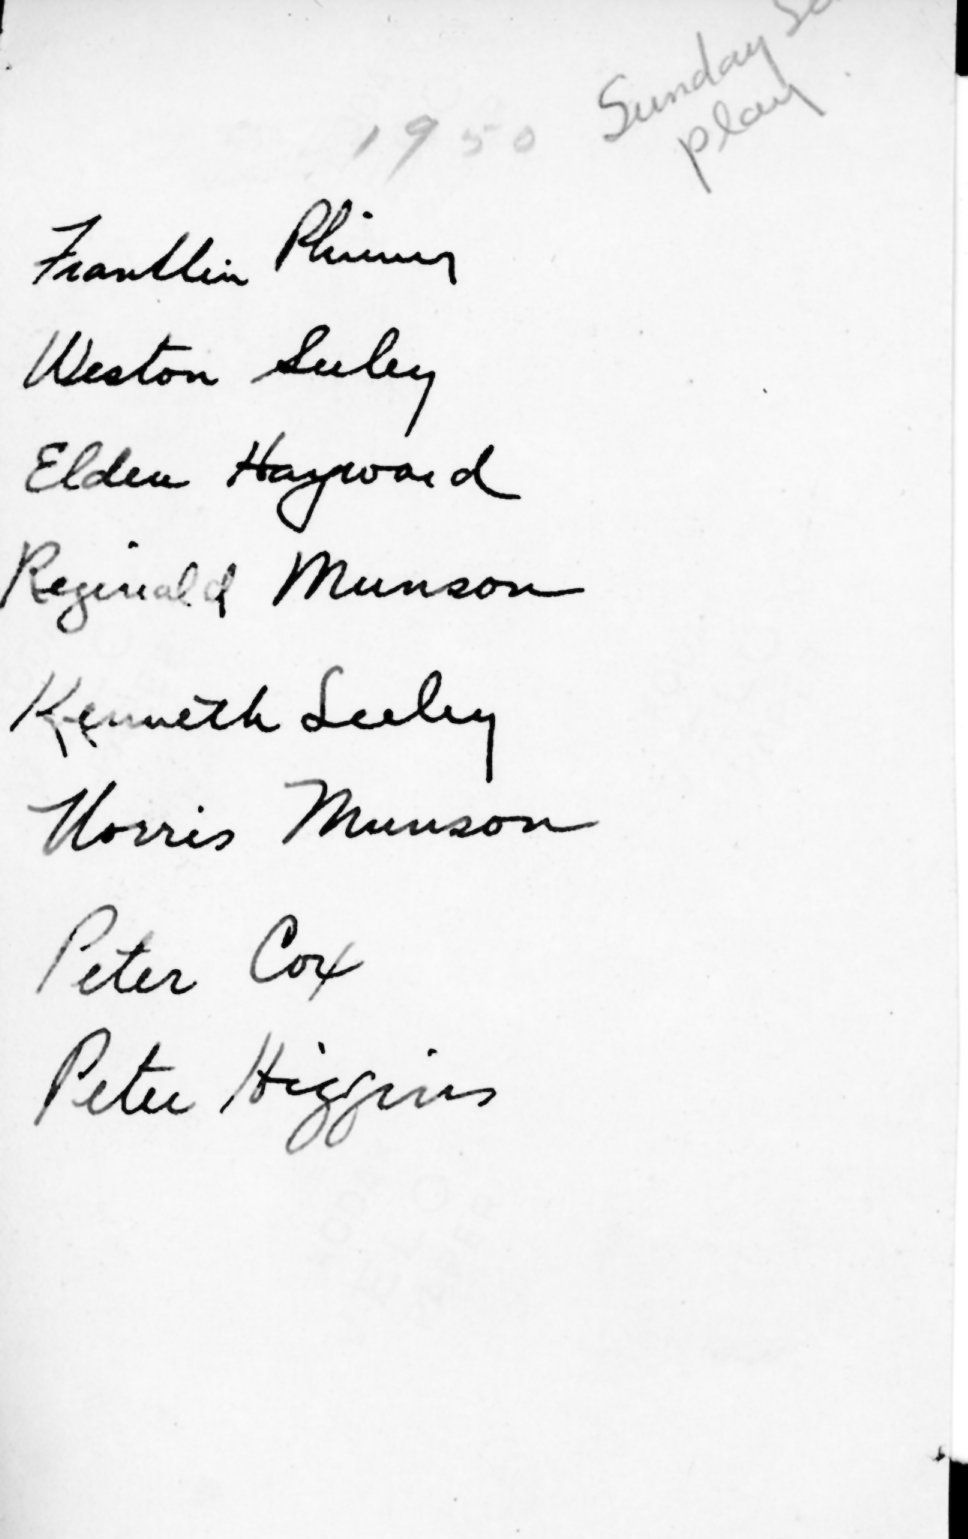 Sunday
play
1950
Franklin
Weston Seeley
Elden Hayward
Reginald Munson
Kenneth Seeley
Norris Munson
Peter Cox
Peter Higgins